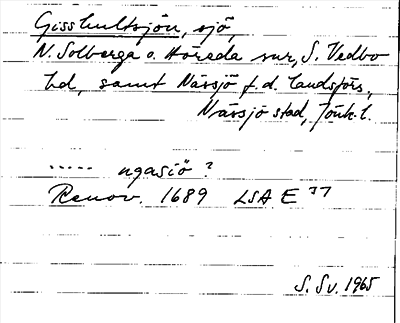 Gisshultsjön, sjö,
N. Solberga o. Höreda snr, S. Vedbo
hd, samt Nässjö f.d. landsförs.,
Nässjö stad, Jönk. l.
..... ngasiö ?
Renov. 1689 LSA E 77
S. Sv. 1965